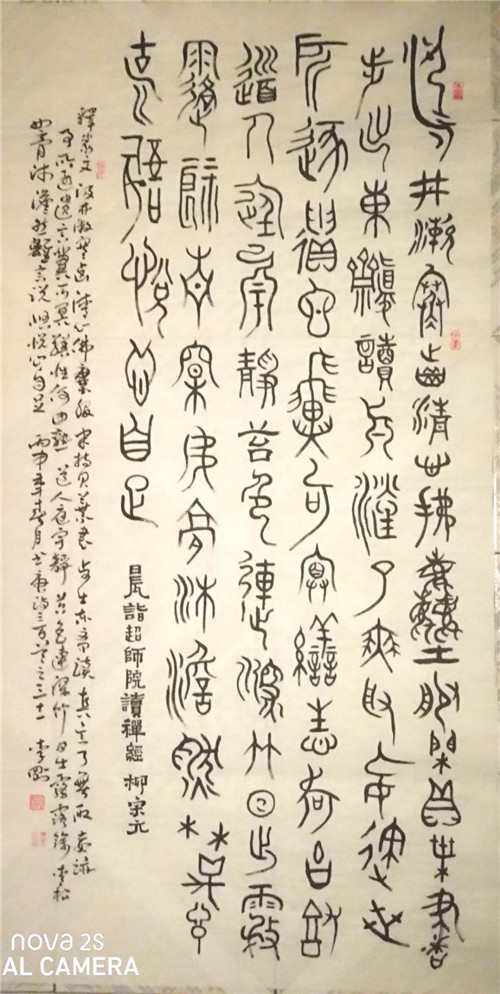 汲井漱寒齒清心拂塵服閒持貝葉書
步出東齋讀真源了無取妄跡世
所逐遺言冀可冥繕性何由熟
道人庭宇靜苔色連深竹日出霧
露餘青松如膏沐澹然離言
說悟悅心自足
晨詣超師院讀禪經 柳宗元
釋篆文 汲井漱寒齒 清心拂塵服 閒持貝葉書 步出東齋讀 真源了無取 妄跡
世所逐 遺言冀可冥 繕性何由熟 道人庭宇靜 苔色連深竹 日出霧露餘 青松
如膏沐 澹然離言說 悟悅心自足 丙申年月書唐詩三百首之三十一
nova 2s
AL CAMERA